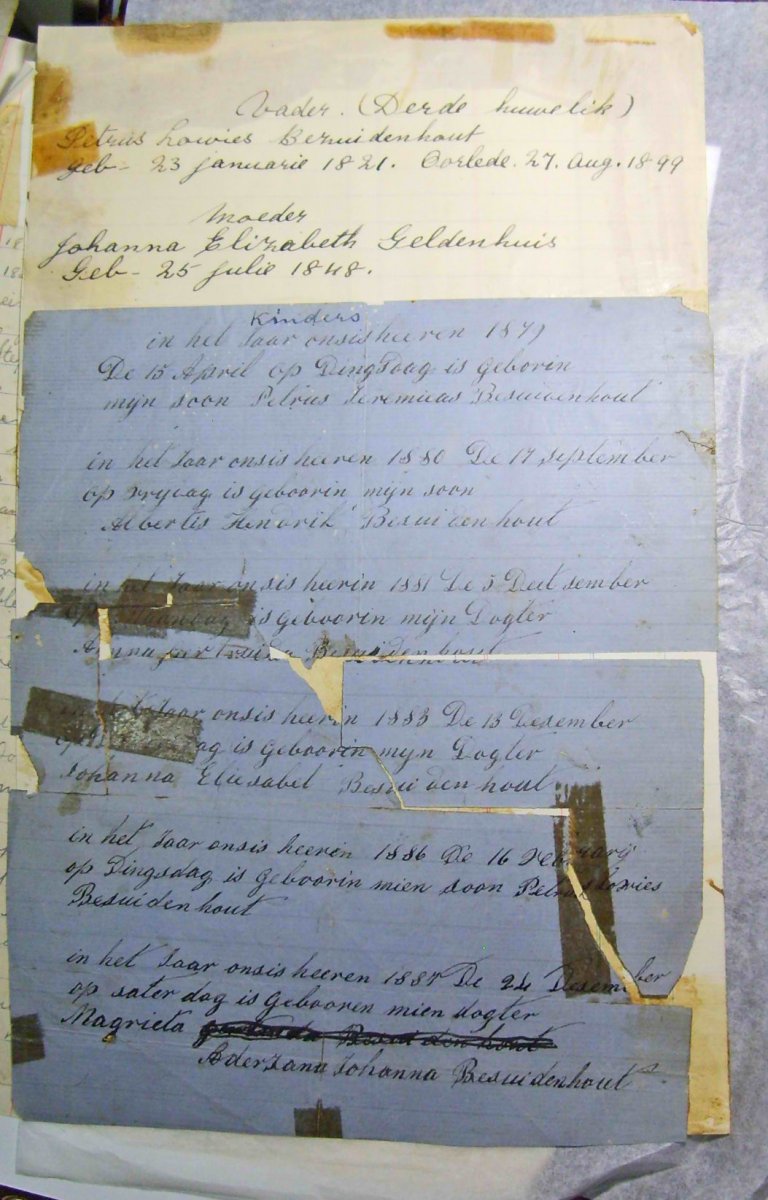 Vader. (Derde huwelik)
Petrus Lowies Bezuidenhout
Geb - 23 januarie 1821. Oorlede. 27. Aug. 1899
Moeder
Johanna Elizabeth Geldenhuis
Geb - 25 julie 1848.
Kinders
in het Jaar onsis heeren 1879
De 15 April op Dingsdag is geborin
mijn soon Petrus Jeremieas Besuidenhout
in het Jaar onsis heeren 1880 De 17 september
op vrijdag is geboorin mijn soon
Albertis Hendrik Besuidenhout
in het Jaar onsis heerin 1881 De 5 Deitsember
op Maandag is geboorin mijn Dogter
Besuidenhout
Jaar onsis heerin 1883 De 13 Desember
is geboorin myn Dogter
Johanna Eliesabet Besuidenhout
in het Jaar onsis heeren 1886 De 16
op Dingsdag is Geboorin mien soon Petrus Lowies
Besuidenhout
in het Jaar onsis heeren 1887 De 24 Desember
op saterdag is Gebooren mien dogter
Magrieta
Aderzana Johanna Besuidenhout